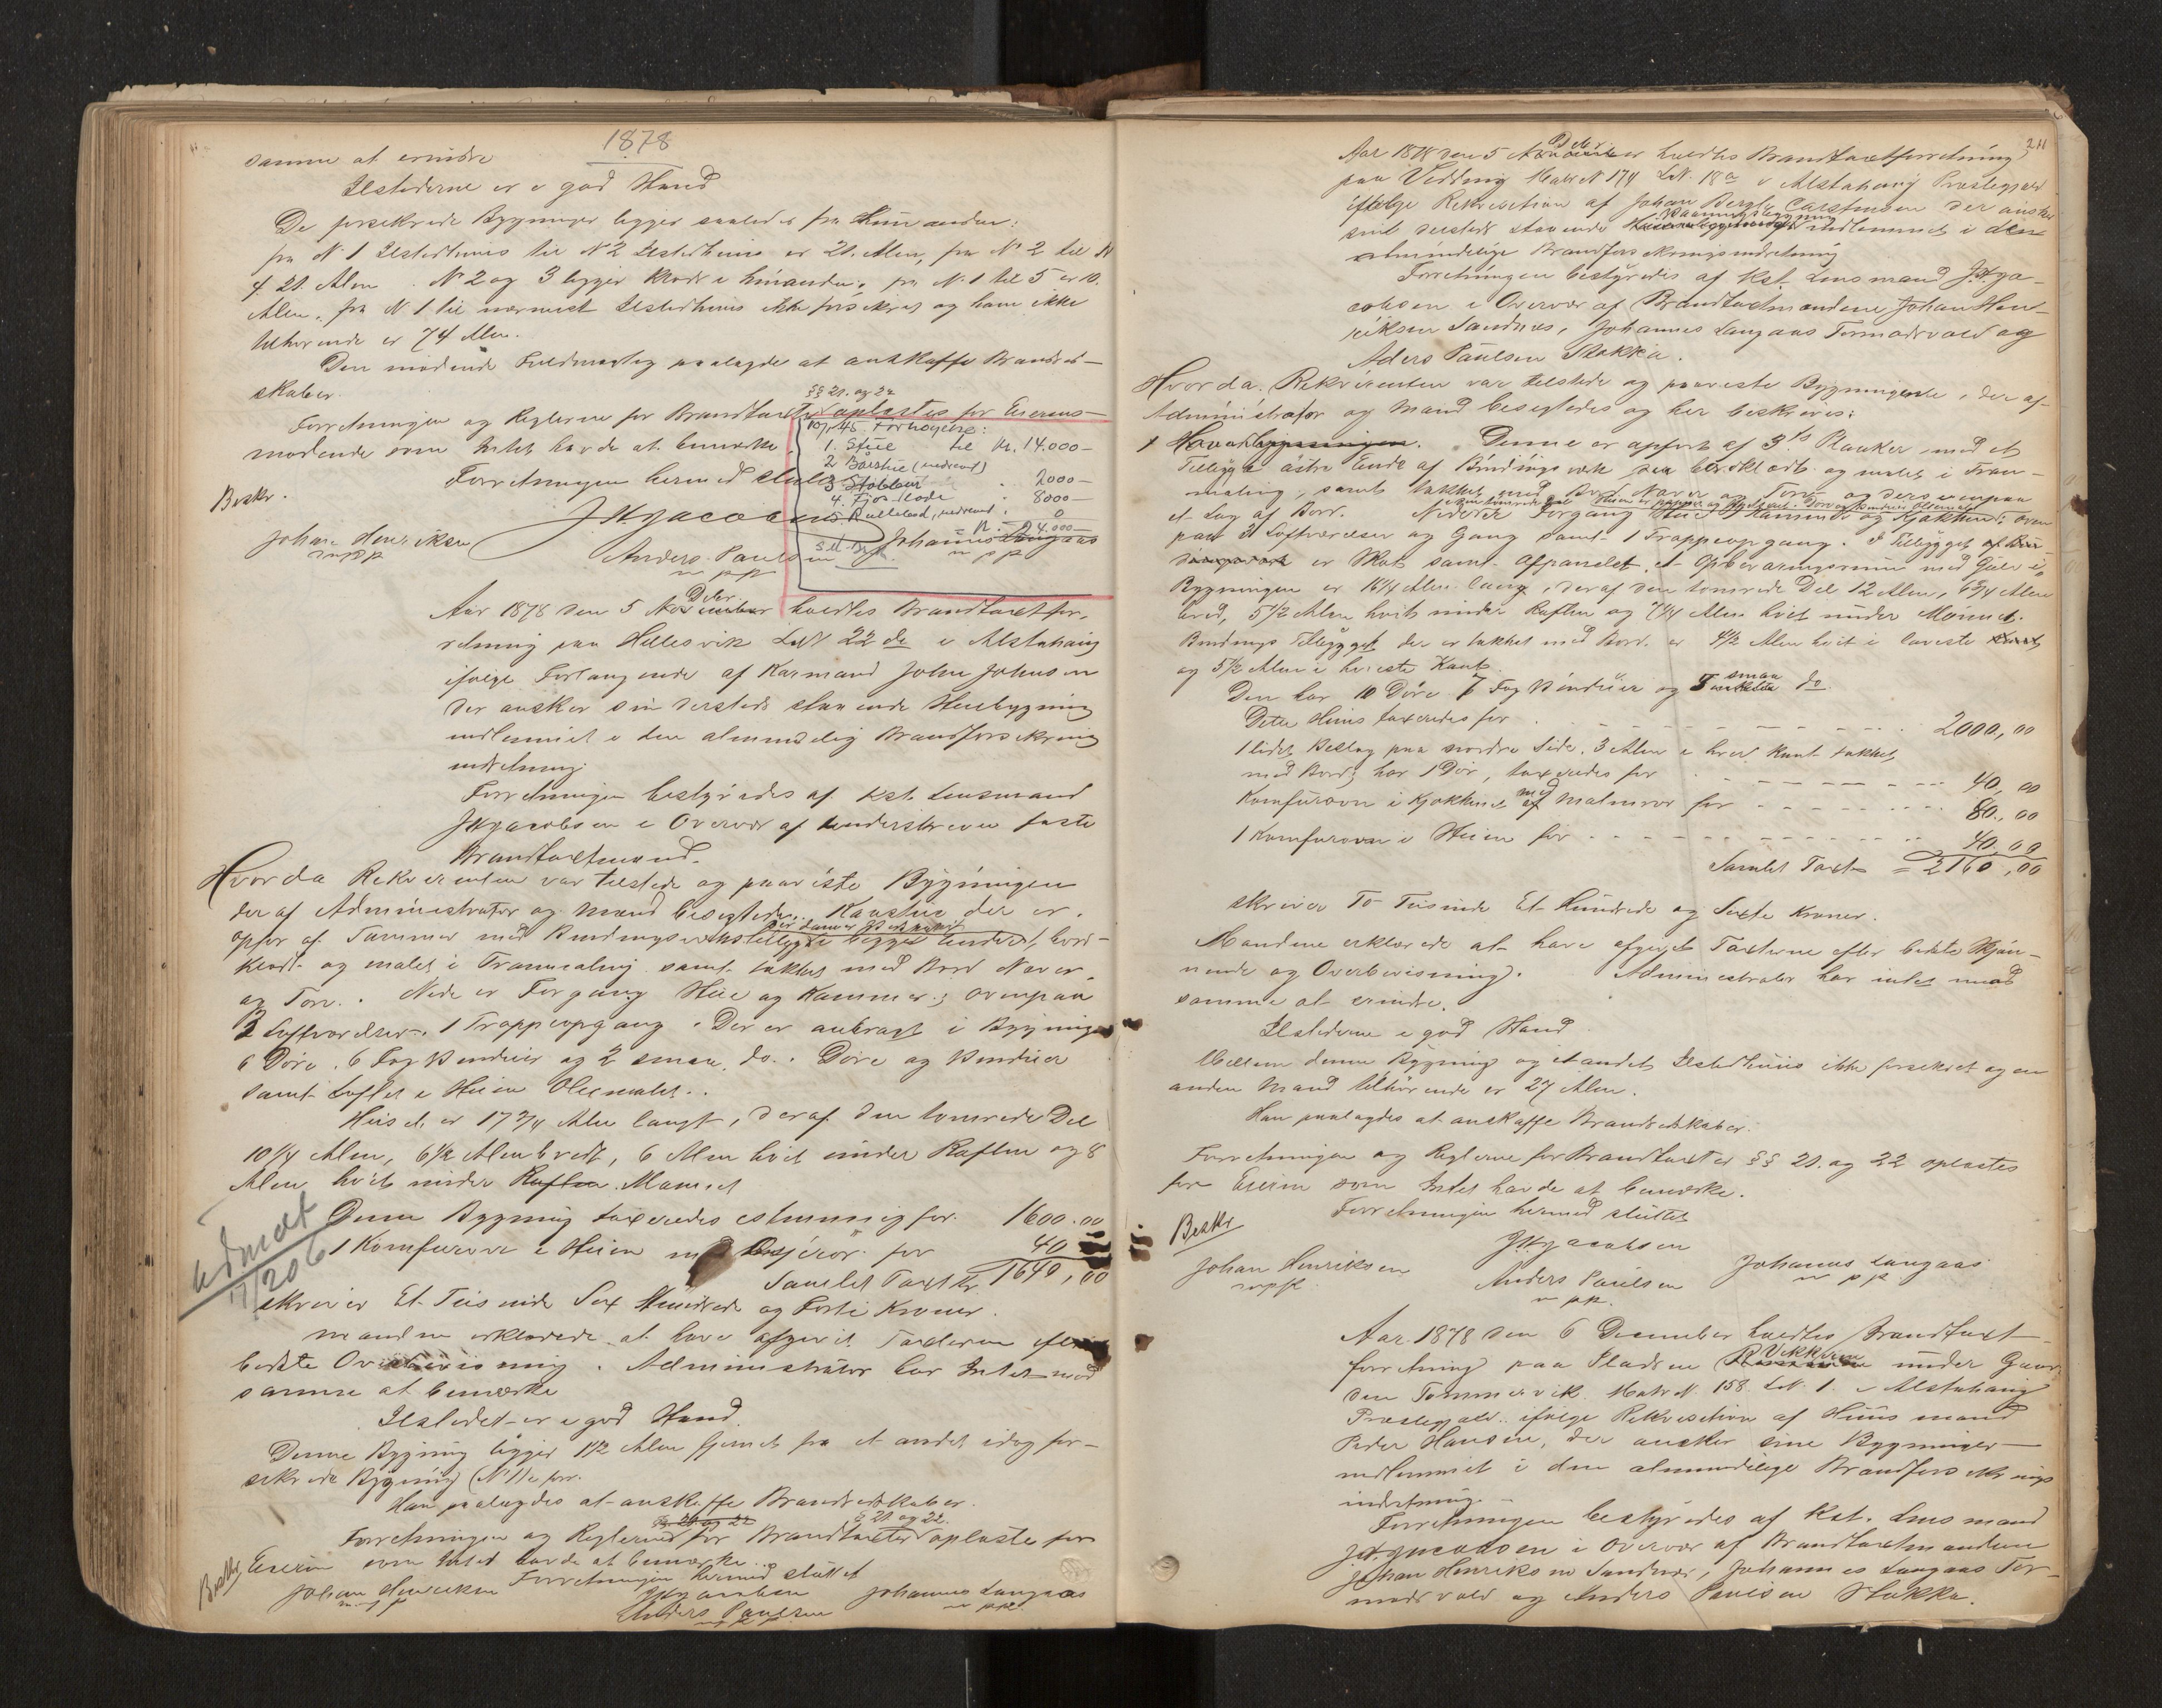 1878
samme at erindre
Ildstederne er i god Stand
De forsekrede Bygninger ligger saaledes fra Hinanden:
fra N. 1 Ildstedhuus til N 2 Ildstedhuus er 21. Alen, fra N. 2 til N
4 21. Alen. N 2 og 3 ligger i hinanden, fra N. 1 til 5 er 10.
Alen, fra N 1 til nærmest Ildstedhuus ikke forsikret og ham ikke
tilhørende er 74 Alen.
Den mødende Fuldmægtig paalagdes at anskaffe Brandred-
skaber.
§§ 21. og 22
Forretningen og Reglerne for Brandtaxter oplæstes for Eierens
mødende som Intet havde at bemærke
Forretningen hermed sluttet
Forhøyelse:
1. Stue til Kr. 14.000-
2 Borstue (nedrevet)
3 Stabbur 2000-
4. Fjøs-lade 8000-
5. nedrevet 0
Kr. 24.000-
Beskr.
JHJacobsen
Johan Henriksen
m p p
Anders Paulsen
m p p
Johannes Langaas
m p p
Decbr.
Aar 1878 den 5 November holdtes Brandtaxtfor-
retning paa Hellesvik LN 22 de i Alstahaug
ifølge Forlangende af Kaarmand John Johnsen
der ønsker sin dersteds staaende Huusbygning
indlemmet i den almindelig Brandforsekring
indretning.
Forretningen bestyredes af Kst. Lensmand
JHJacobsen i Overvær af underskrevne faste
Brandtaxtmænd.
Hvorda Rekvirenten var tilstede og paaviste Bygningen
der af Administrator og Mænd besigtedes. der er
opfør af Tømmer med Bindingsverkstillygge begge Ender, bord-
klædt og malet i Tranmaling samt takket med Bord Næver
og Torv. Nede er Forgang Stue og Kammer; ovenpaa
2 Loftværelser. 1 Trappeopgang. Der er anbragt i Bygningen
6 Døre, 6 Fag Vinduer og 2 smaa do. Døre og Vinduer
samt Loftet i Stuen Oliemalet.
Huset er 17 3/4 Alen langt, deraf den tømrede Del
10 1/4 Alen, 6 1/2 Alen bredt, 6 Alen høit under Raften og 8
Alen høit under Raften Mønnet
Denne Bygning taxeredes for 1600.00
1 Komfurovn i Stuen med for 40
Samlet Taxt Kr 1640,00
skriver Et Tusinde Sex Hundrede og Førti Kroner.
Mændene erklærede at have afgivet Taxterne efter
bedste Overbevisning. Administrator har Intet mod
samme at bemærke
Ildstedet er i god Stand.
Denne Bygning ligger 1 1/2 Alen fjernet fra et andet idag for-
sekrede Bygning (N 1)
Han paalagdes at anskaffe Brandredskaber.
§§ 21 og 22 § 21. og 22.
Forretningen og Reglerne for Brandtaxter oplæste for
Eieren som Intet havde at bemærke.
Forretningen hermed sluttet
Beskr.
Johan Henriksen
JHJacobsen
Johannes Langaas
Anders Paulsen
udmeldt
211
Decbr
Aar 1878 den 5 November holdtes Brandtaxtforretning
paa Matr N 174 LN. 18a i Alstahaug Præstegjæld
ifølge Rekvisition af Johan Carstensen der ønsker
Vaaningsbygning
sind dersteds staaende indlemmet i den
almindelige Brandforsekringsindretning
Forretningen bestyredes af Kst. Lensmand JHJa-
cobsen i Overvær af Brandtaxtmændene Johan Hen-
riksen Sandnæs, Johannes Langaas Tormodsvold og
Aders Paulsen Stokka.
Hvorda Rekvirenten var tilstede og paaviste Bygningerne, der af
Administrator og Mænd besigtedes og her beskrives:
1 Hovedbygningen. Denne er opført af 3 ds Planker med et
Tillygg i østre Ende af Bindingsverk og malet i Tran-
maling, samt takket med Bord Næver og Torv
et Lag af Bord. Nede er Forgang Stue Kammer og Kjøkken: oven
paa 3 Loftværelser og Gang samt 1 Trappeopgang. I Tillygget
er Skot samt afpanelet et Opbevaringsrum med Gulv i.
Bygningen er 16 1/4 Alen lang, deraf den tømrede Del 12 Alen, 6 3/4 Alen
bred, 5 1/2 Alen høit under Raften og 7 1/4 Alen høit under Mønnet.
Bindings Tillygget der er takket med Bord er 4 1/2 Alen høit i laveste Kant
og 5 1/2 Alen i høieste Kant.
Den har 10 Døre 7 Fag Vinduer og 3 smaa do
Dette Huus taxeredes for 2000,00
1 lidet Bislag paa nordre Side, 3 Alen i hver Kant takket
med Bord; har 1 Dør, taxeredes for 40,00
Komfurovn i Kjøkkenet med Malmrør for 80,00
1 Komfurovn i Stuen for 40,00
Samlet Taxt = 2160,00
skriver To Tusinde Et Hundrede og Sexti Kroner.
Mændene erklærede at have afgivet Taxterne efter bedste Skjøn-
nende og Overbevisning. Administrator har intet mod
samme at erindre.
Ildstederne i god Stand
Mellem denne Bygning og et andet Ildstedhuus ikke forsekret og en
anden Mand tilhørende er 27 Alen.
Han paalagdes at anskaffe Brandredskaber.
Forretningen og Reglerne for Brandtaxter §§ 21. og 22 oplæstes
for Eieren som Intet havde at bemærke.
Forretningen hermed sluttet
Beskr
JHJacobsen
Johan Henriksen
m p p
Anders Paulsen
m p p.
Johannes Langaas
m p p
Aar 1878 den 6 December holdtes Brandtaxt-
forretning paa Pladsen under Gaar-
den Tømmervik Matr N. 158 LN. 1. i Alstahaug
Præstegjæld ifølge Rekvisition af Huusmand
Peder Hansen, der ønsker sine Bygninger
indlemmet i den almindelige Brandforsekrings
indretning
Forretningen bestyredes af Kst. Lensmand
JHJacobsen i Overvær af Brandtaxtmændene
Johan Henriksen Sandnæs, Johannes Langaas Tor-
modsvold og Anders Paulsen Stokka.